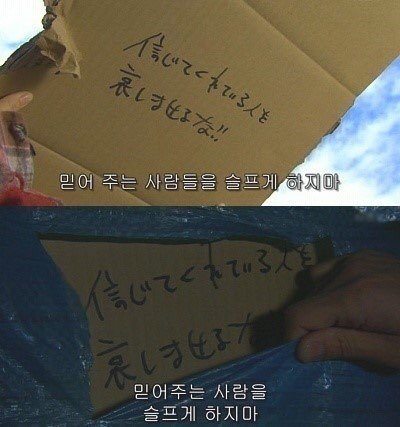 信じてくれてる人を
哀しませるな!!
믿어 주는 사람들을 슬프게 하지마
信じてくれてる人を
哀しませるな
믿어주는 사람을
슬프게 하지마